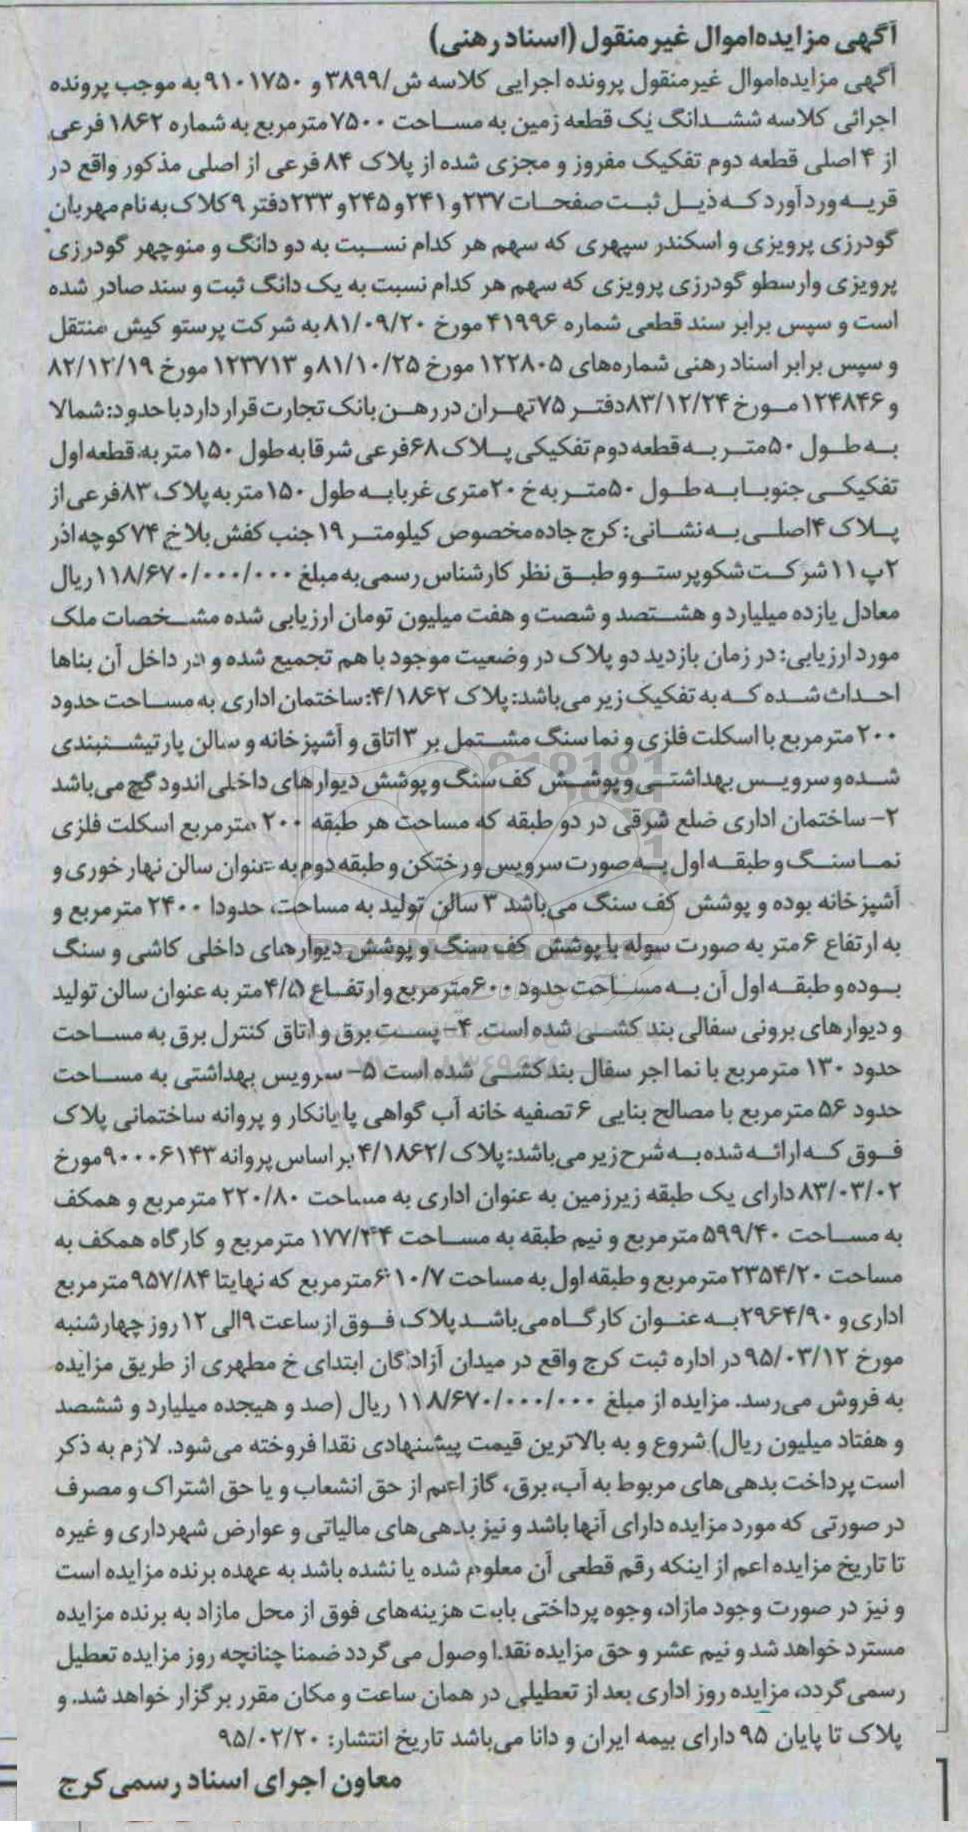 آگهی مزایده‌اموال غیرمنقول (اسناد رهنی)
آگهی مزایده‌اموال غیرمنقول پرونده اجرایی کلاسه ش/۳۸۹۹ و ۹۱۰۱۷۵۰ به موجب پرونده
اجرائی کلاسه ششدانگ یک قطعه زمین به مساحت ۷۵۰۰ مترمربع به شماره ۱۸۶۲ فرعی
از ۴ اصلی قطعه دوم تفکیک مفروز و مجزی شده از پلاک ۸۴ فرعی از اصلی مذکور واقع در
قریه وردآورد که ذیل ثبت صفحات ۲۳۷ و ۲۴۱ و ۲۴۵ و ۲۳۳ دفتر ۹ کلاک به نام مهربان
گودرزی پرویزی و اسکندر سپهری که سهم هر کدام نسبت به دو دانگ و منوچهر گودرزی
پرویزی وارسطو گودرزی پرویزی که سهم هر کدام نسبت به یک دانگ ثبت و سند صادر شده
است و سپس برابر سند قطعی شماره ۴۱۹۹۶ مورخ ۸۱/۰۹/۲۰ به شرکت پرستو کیش منتقل
و سپس برابر اسناد رهنی شماره‌های ۱۲۲۸۰۵ مورخ ۸۱/۱۰/۲۵ و ۱۲۳۷۱۳ مورخ ۸۲/۱۲/۱۹
و ۱۲۴۸۴۶ مورخ ۸۳/۱۲/۲۴ دفتر ۷۵ تهران در رهن بانک تجارت قرار دارد با حدود: شمالا
به طول ۵۰ متر به قطعه دوم تفکیکی پلاک ۶۸ فرعی شرقا به طول ۱۵۰ متر به قطعه اول
تفکیکی جنوبا به طول ۵۰ متر به خ ۲۰ متری غربا به طول ۱۵۰ متر به پلاک ۸۳ فرعی از
پلاک ۴ اصلی به نشانی: کرج جاده مخصوص کیلومتر ۱۹ جنب کفش بلا خ ۷۴ کوچه اذر
۲ پ ۱۱ شرکت شکوپرستو و طبق نظر کارشناس رسمی به مبلغ ۱۱۸/۶۷۰/۰۰۰/۰۰۰ ریال
معادل یازده میلیارد و هشتصد و شصت و هفت میلیون تومان ارزیابی شده مشخصات ملک
مورد ارزیابی: در زمان بازدید دو پلاک در وضعیت موجود با هم تجمیع شده و در داخل آن بناها
احداث شده که به تفکیک زیر می‌باشد: پلاک ۴/۱۸۶۲: ساختمان اداری به مساحت حدود
۲۰۰ مترمربع با اسکلت فلزی و نما سنگ مشتمل بر ۳ اتاق و آشپزخانه و سالن پارتیشنبندی
شده و سرویس بهداشتی و پوشش کف سنگ و پوشش دیوارهای داخلی اندود گچ می‌باشد
۲- ساختمان اداری ضلع شرقی در دو طبقه که مساحت هر طبقه ۲۰۰ مترمربع اسکلت فلزی
نما سنگ و طبقه اول به صورت سرویس و رختکن و طبقه دوم به عنوان سالن نهارخوری و
آشپزخانه بوده و پوشش کف سنگ می‌باشد ۳ سالن تولید به مساحت، حدودا ۲۴۰۰ مترمربع و
به ارتفاع ۶ متر به صورت سوله با پوشش کف سنگ و پوشش دیوارهای داخلی کاشی و سنگ
بوده و طبقه اول آن به مساحت حدود ۶۰۰ مترمربع و ارتفاع ۴/۵ متر به عنوان سالن تولید
و دیوارهای برونی سفالی بند کشی شده است. ۴- پست برق و اتاق کنترل برق به مساحت
حدود ۱۳۰ مترمربع با نما اجر سفال بندکشی شده است ۵- سرویس بهداشتی به مساحت
حدود ۵۶ مترمربع با مصالح بنایی ۶ تصفیه خانه آب گواهی پایانکار و پروانه ساختمانی پلاک
فوق که ارائه شده به شرح زیر می‌باشد: پلاک /۴/۱۸۶۲ بر اساس پروانه ۹۰۰۰۶۱۴۳ مورخ
۸۳/۰۳/۰۲ دارای یک طبقه زیرزمین به عنوان اداری به مساحت ۲۲۰/۸۰ مترمربع و همکف
به مساحت ۵۹۹/۴۰ مترمربع و نیم طبقه به مساحت ۱۷۷/۲۴ مترمربع و کارگاه همکف به
مساحت ۲۳۵۴/۲۰ مترمربع و طبقه اول به مساحت ۶۱۰/۷ مترمربع که نهایتا ۹۵۷/۸۴ مترمربع
اداری و ۲۹۶۴/۹۰ به عنوان کارگاه می‌باشد پلاک فوق از ساعت ۹ الی ۱۲ روز چهارشنبه
مورخ ۹۵/۰۳/۱۲ در اداره ثبت کرج واقع در میدان آزادگان ابتدای خ مطهری از طریق مزایده
به فروش می‌رسد. مزایده از مبلغ ۱۱۸/۶۷۰/۰۰۰/۰۰۰ ریال (صد و هیجده میلیارد و ششصد
و هفتاد میلیون ریال) شروع و به بالاترین قیمت پیشنهادی نقدا فروخته می‌شود. لازم به ذکر
است پرداخت بدهی‌های مربوط به آب، برق، گاز اعم از حق انشعاب و یا حق اشتراک و مصرف
در صورتی که مورد مزایده دارای آنها باشد و نیز بدهی‌های مالیاتی و عوارض شهرداری و غیره
تا تاریخ مزایده اعم از اینکه رقم قطعی آن معلوم شده یا نشده باشد به عهده برنده مزایده است
و نیز در صورت وجود مازاد، وجوه پرداختی بابت هزینه‌های فوق از محل مازاد به برنده مزایده
مسترد خواهد شد و نیم عشر و حق مزایده نقدا وصول می گردد ضمنا چنانچه روز مزایده تعطیل
رسمی گردد، مزایده روز اداری بعد از تعطیلی در همان ساعت و مکان مقرر برگزار خواهد شد. و
پلاک تا پایان ۹۵ دارای بیمه ایران و دانا می‌باشد تاریخ انتشار: ۹۵/۰۲/۲۰
معاون اجرای اسناد رسمی کرج